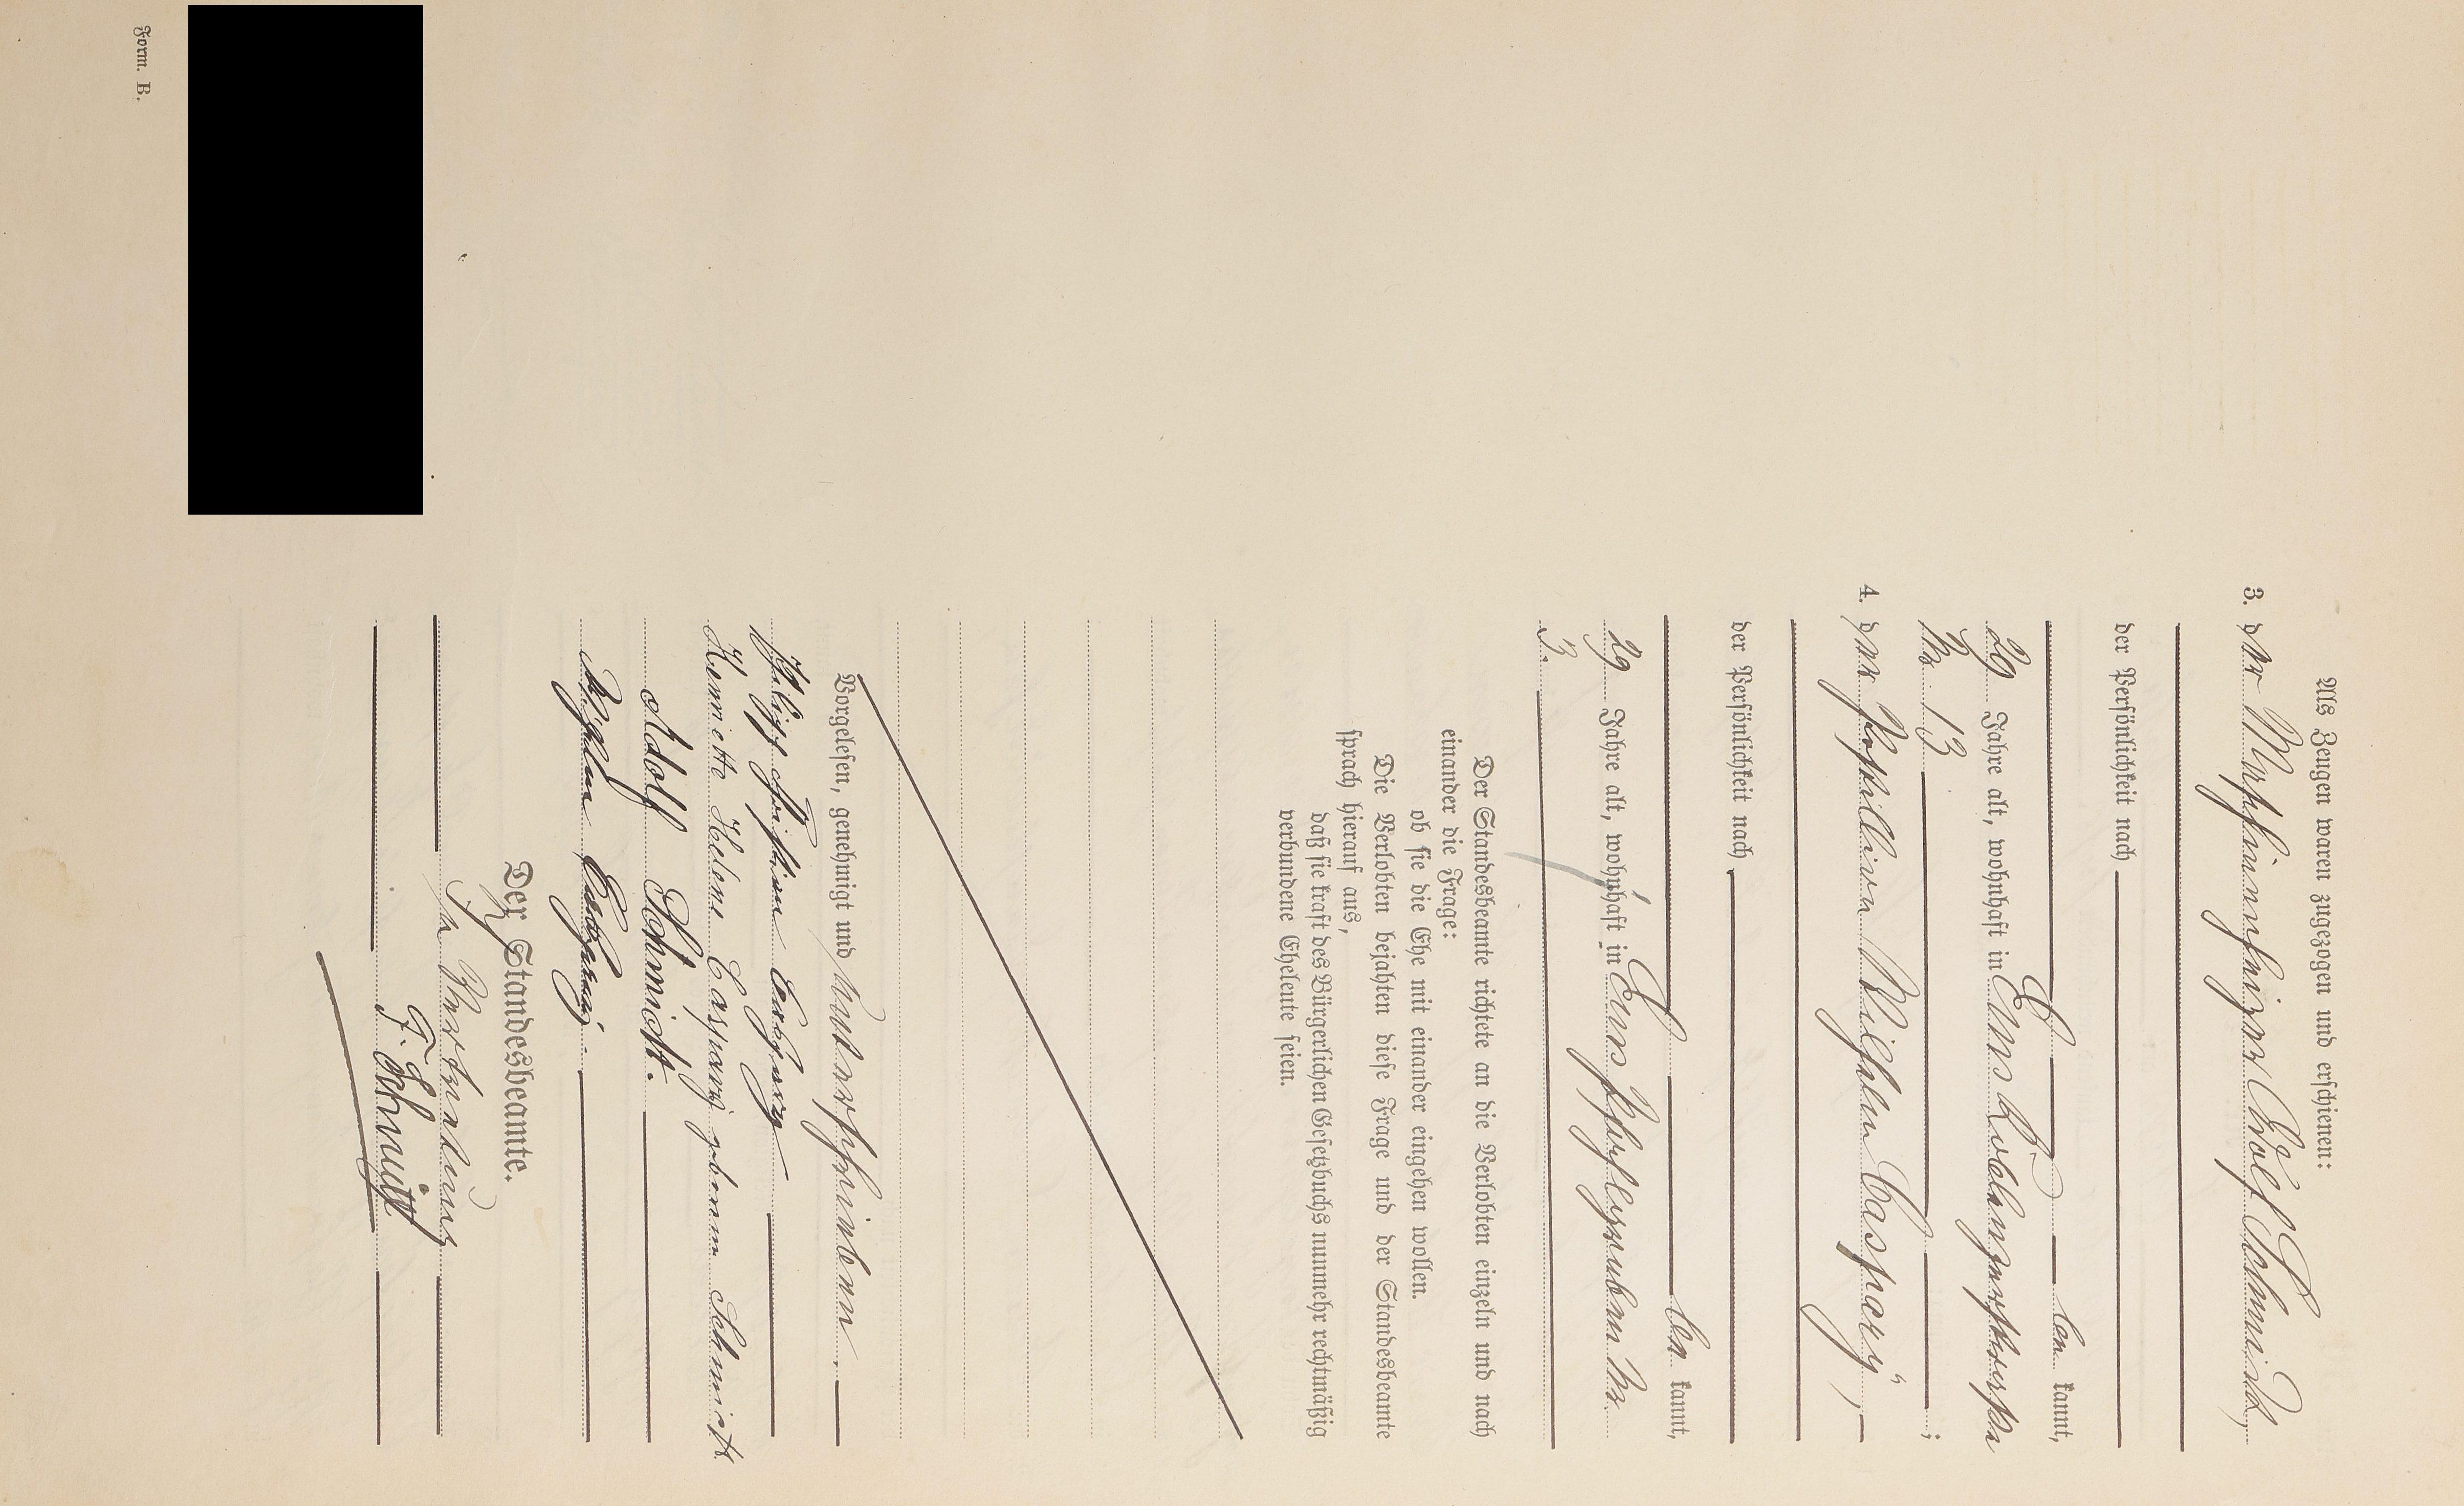 Als Zeugen waren zugezogen und erschienen:
3. der Maschinenheizer Adolf Schmidt,
der Persönlichkeit nach
be kannt,
29 Jahre alt, wohnhaft in Ems
Nr. 13 ;
4. der Postillion Wilhelm Caspary,
der Persönlichkeit nach
be kannt,
29 Jahre alt, wohnhaft in Ems Nr.
3.
Der Standesbeamte richtete an die Verlobten einzeln und nach
einander die Frage:
ob sie die Ehe mit einander eingehen wollen.
Die Verlobten bejahten diese Frage und der Standesbeamte
sprach hierauf aus,
daß sie kraft des Bürgerlichen Gesetzbuchs nunmehr rechtmäßig
verbundene Eheleute seien.
Vorgelesen, genehmigt und unterschrieben.
Philipp Christian Caspary
Henriette Helene Caspary geborene Schmidt
Adolf Schmidt.
Wilhelm Caspary.
Der Standesbeamte.
In Vertretung
F. Schmitt
Form. B.